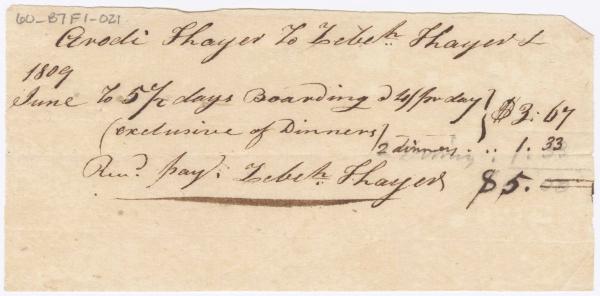 60-B7F1-021
Arodi Thayer To Zebeh. Thayer
1809
June To 5 1/2 days Boarding @ 4/ pr day } $3:67
(exclusive of Dinners) 2 dinners .. 1.33
Recd. pay: Zebeh. Thayer $5.